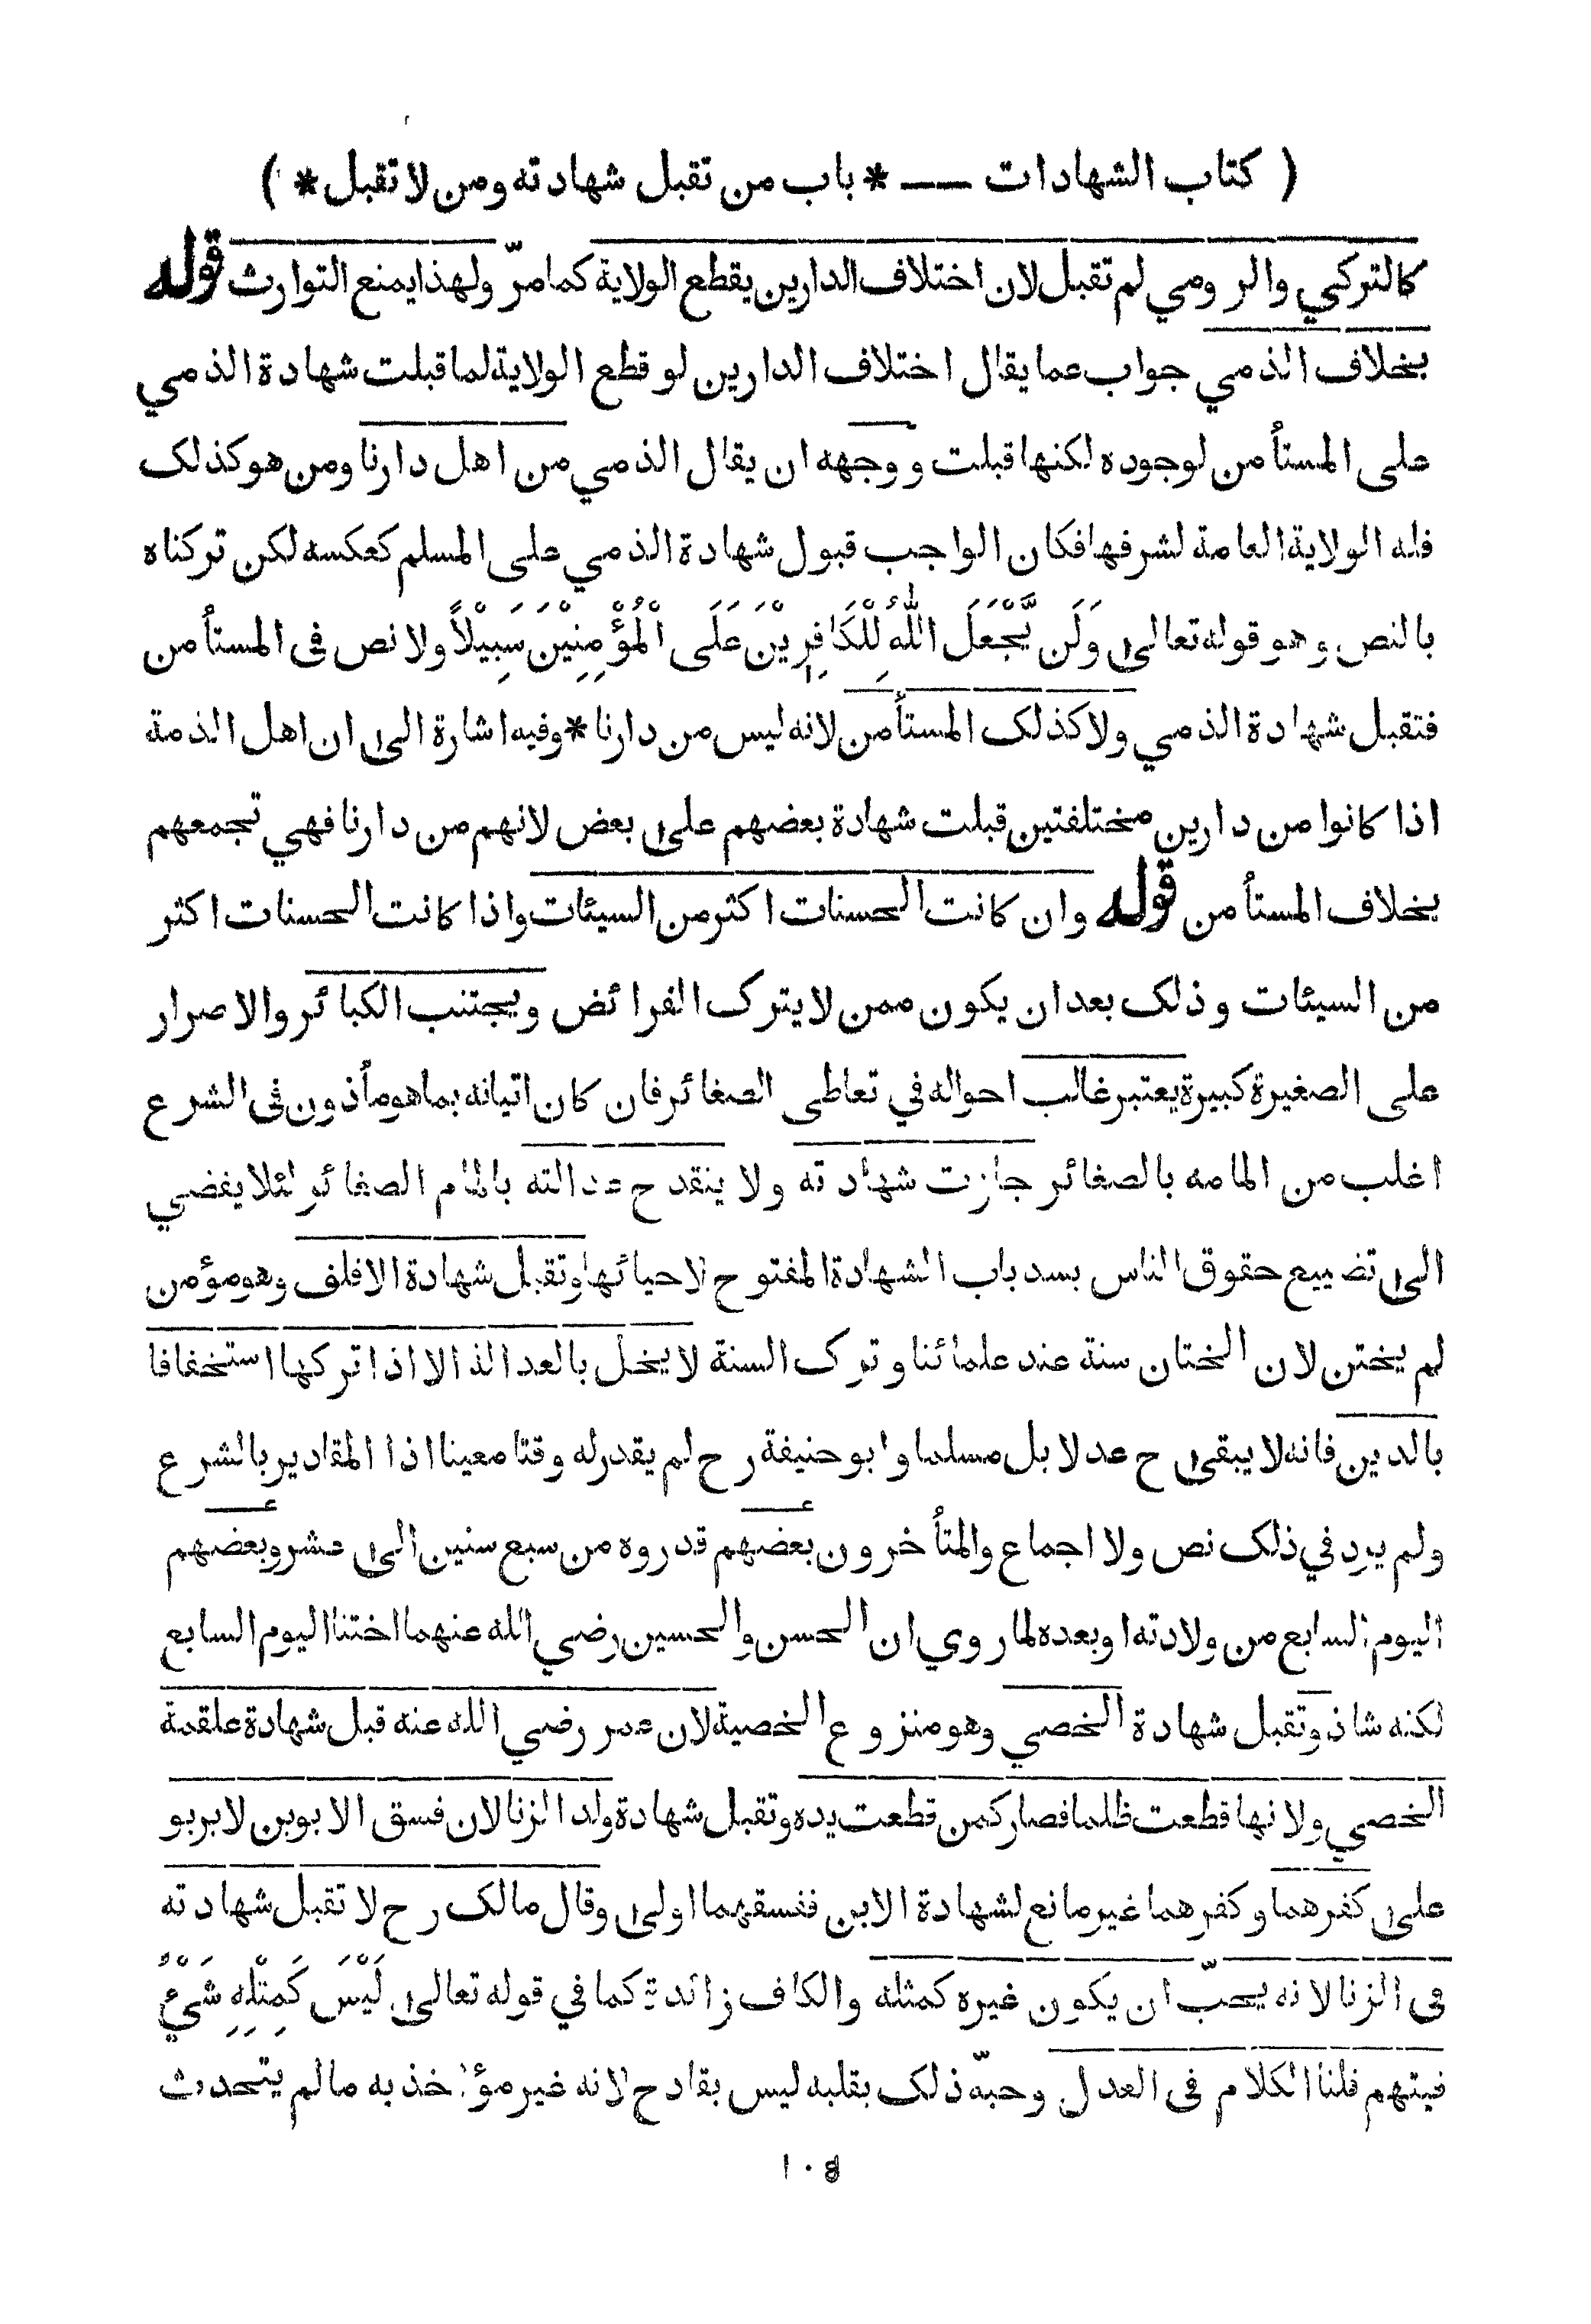 ( كتاب الشهادات —— * باب من تقبل شهادته ومن لا تقبل * )
كالتركي والرومي لم تقبل لان اختلاف الدارين يقطع الولاية كما مرّ ولهذا يمنع التوارث قوله
بخلاف الذمي جواب عما يقال اختلاف الدارين لو قطع الولاية لما قبلت شهادة الذمي
على المستأمن لوجوده لكنها قبلت ووجهه ان يقال الذمي من اهل دارنا ومن هو كذلك
فله الولاية العامة لشرفها فكان الواجب قبول شهادة الذمي على المسلم كعكسه لكن تركناه
بالنص وهو قوله تعالى وَلَن يَّجْعَلَ اللّٰهُ لِلْكَافِرِيْنَ عَلَى الْمُؤْمِنِيْنَ سَبِيْلاً ولا نص فى المستأمن
فتقبل شهادة الذمي ولا كذلك المستأمن لانه ليس من دارنا * وفيه اشارة الى ان اهل الذمة
اذا كانوا من دارين مختلفتين قبلت شهادة بعضهم على بعض لانهم من دارنا فهي تجمعهم
بخلاف المستأمن قوله وان كانت الحسنات اكثر من السيئات واذا كانت الحسنات اكثر
من السيئات وذلك بعد ان يكون ممن لا يترك الفرائض ويجتنب الكبائر والاصرار
على الصغيرة كبيرة يعتبر غالب احواله في تعاطى الصغائر فان كان اتيانه بما هو مأذون فى الشرع
اغلب من المامه بالصغائر جازت شهادته ولا ينقدح عدالته بالمام الصغائر لئلا يفضي
الى تضييع حقوق الناس بسد باب الشهادة المفتوح لاحيائها وتقبل شهادة الاقلف وهو مؤمن
لم يختن لان الختان سنة عند علمائنا وترك السنة لا يخل بالعدالة الا اذا تركها استخفافا
بالدين فانه لا يبقى ح عدلا بل مسلما وابو حنيفة رح لم يقدر له وقتا معينا اذا المقادير بالشرع
ولم يرد في ذلك نص ولا اجماع والمتأخرون بعضهم قدروه من سبع سنين الى عشر وبعضهم
اليوم السابع من ولادته او بعده لما روي ان الحسن والحسين رضي الله عنهما اختنا اليوم السابع
لكنه شاذ وتقبل شهادة الخصي وهو منزوع الخصية لان عمر رضي الله عنه قبل شهادة علقمة
الخصي ولانها قطعت ظلما فصار كمن قطعت يده وتقبل شهادة ولد الزنا لان فسق الابوين لا يربو
على كفرهما وكفرهما غير مانع لشهادة الابن ففسقهما اولى وقال مالك رح لا تقبل شهادته
فى الزنا لانه يحبّ ان يكون غيره كمثله والكاف زائدة كما في قوله تعالى لَيْسَ كَمِثْلِهِ شَيْءٌ
فيتهم قلنا الكلام فى العدل وحبّه ذلك بقلبه ليس بقادح لانه غير مؤاخذ به ما لم يتحدث